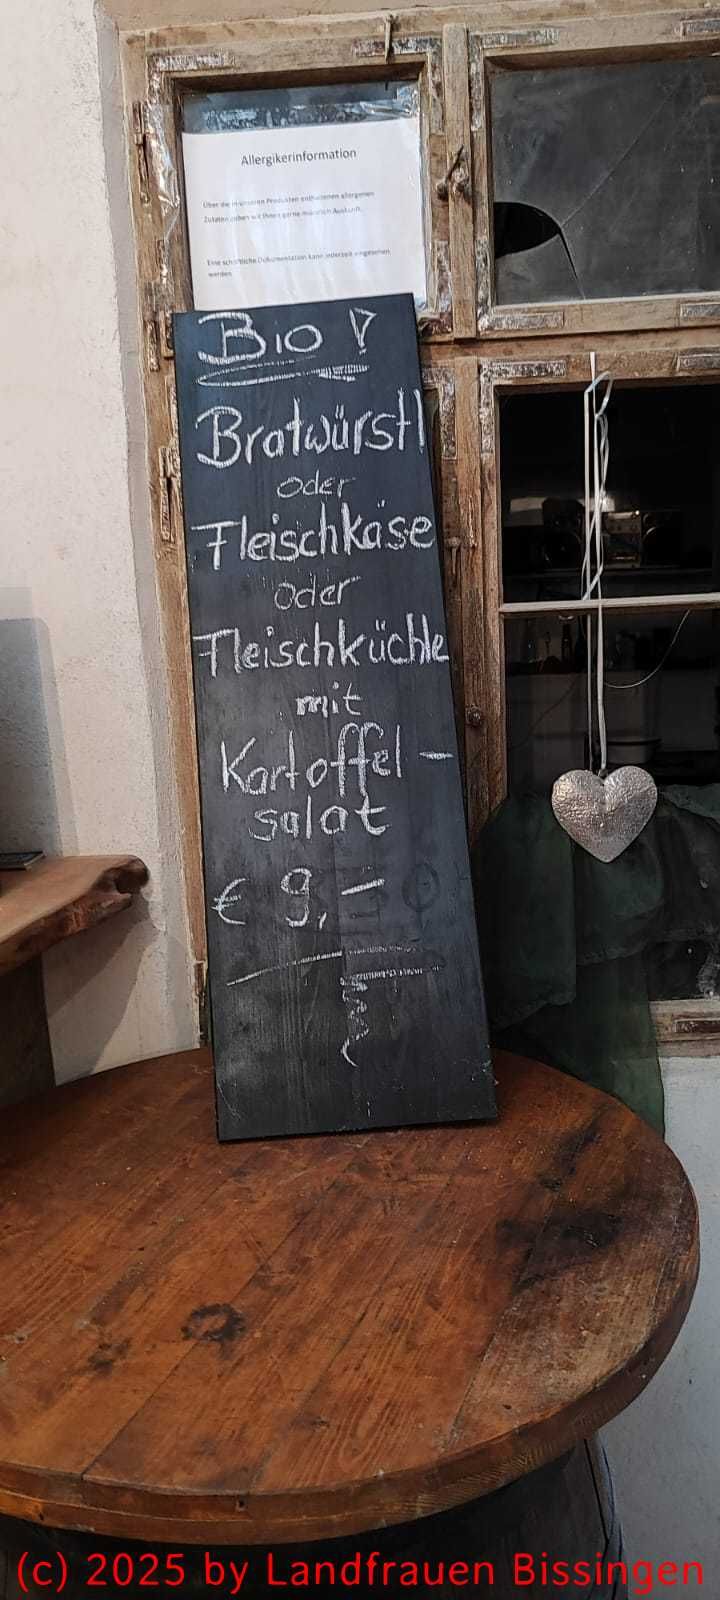 Allergikerinformation
Über die in unseren Produkten enthaltenen allergenen
Zutaten geben wir Ihnen gerne mündlich Auskunft.
Eine schriftliche Dokumentation kann jederzeit eingesehen
werden.
Bio !
Bratwürstl
oder
Fleischkäse
oder
Fleischküchle
mit
Kartoffel-
salat
€ 9,-
(c) 2025 by Landfrauen Bissingen